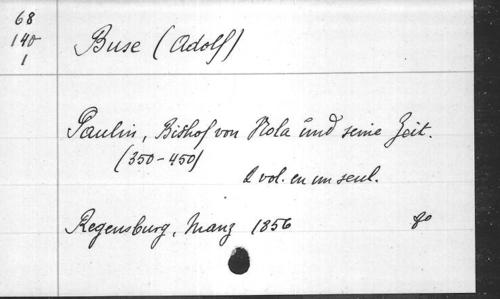 68
140
1
Buse (Adolf)
Paulin, Bishof von Nola und seine Zeit.
(350-450)
2 vol. en un seul.
Regensburg, Manz 1856 8o